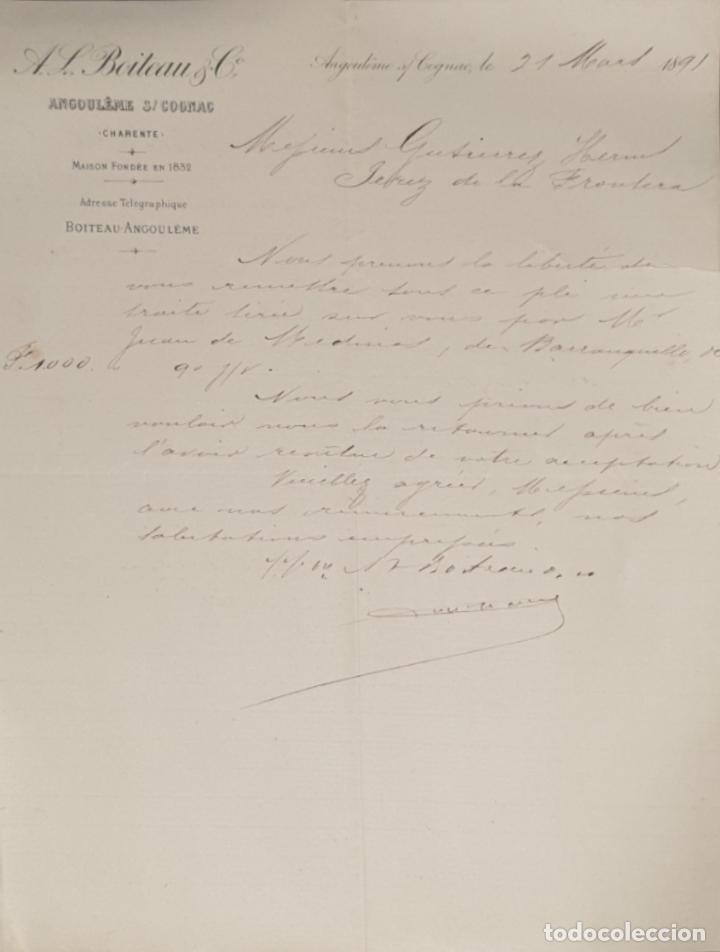 A. L. Boiteau & Co
ANGOULÊME S/ COGNAC
CHARENTE
MAISON FONDÉE EN 1832
Adresse Télégraphique
BOITEAU-ANGOULÊME
Angoulême s/ Cognac, le 21 Mars 1891
Messieurs Gutierrez Herms
Jerez de la Frontera
Nous prenons la liberté de
vous remettre sous ce pli une
traite tirée sur vous par Mr
Juan de Medina, de Barranquilla, de
F. 1.000. à 90 j/v.
Nous vous prions de bien
vouloir nous la retourner après
l'avoir revêtue de votre acceptation
Veuillez agréer, Messieurs,
avec nos remerciements, nos
salutations empressées.
A L Boiteau &
todocoleccion